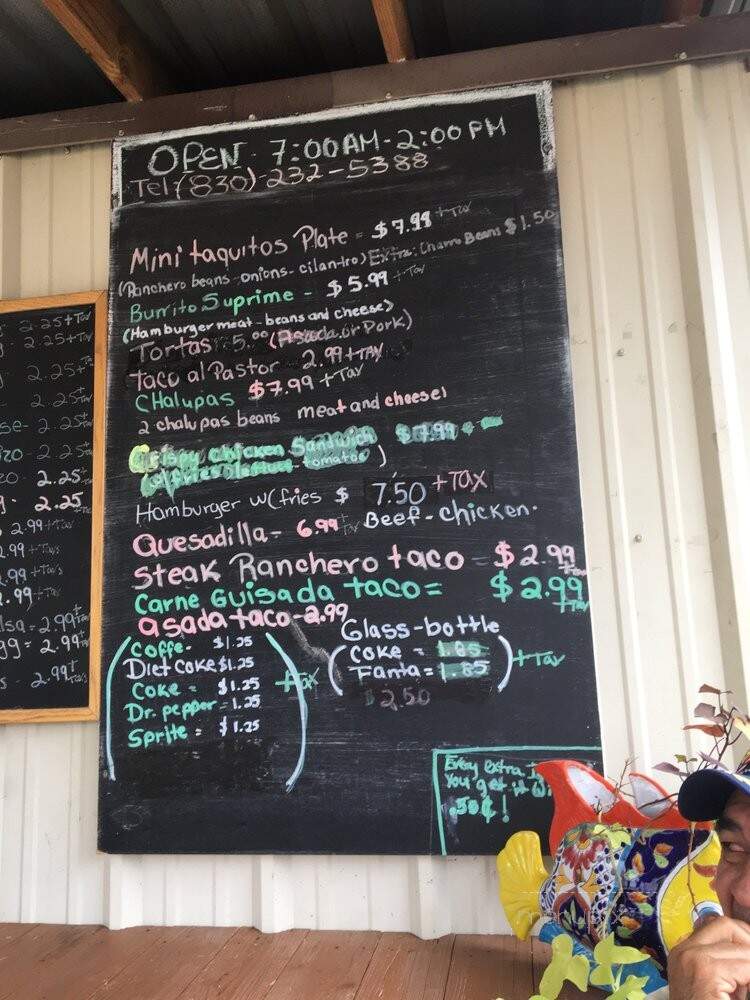 OPEN - 7:00 AM - 2:00 PM
Tel (830)-232-5388
Mini taquitos Plate = $7.99 + Tax
(Ranchero beans - onions - cilantro) Extra: Charro Beans $1.50
Burrito Suprime - $5.99 + Tax
(Hamburger meat - beans and cheese)
Tortas 5.00 (Asada or Pork)
Taco al Pastor 2.99 + TAX
CHalupas $7.99 + Tax
2 chalupas beans meat and cheese
Crispy Chicken Sandwich $7.99 +
fries lettuce - tomatoe )
Hamburger w( fries $ 7.50 + TAX
Beef - chicken.
Quesadilla - 6.99 + Tax
Steak Ranchero taco = $2.99 + Tax
Carne Guisada taco = $2.99 + Tax
asada taco - 2.99
Coffe - $1.25
Diet Coke $1.25
Coke = $1.25
Dr. pepper - 1.25
Sprite = $1.25
+ Tax
Glass-bottle
Coke = 1.85
Fanta = 1.85
+ Tax
$2.50
Every extra
You get it
.50¢!
2.25 + Tax
2.25 + Tax
2.25 +
2.25
2.25
2.25
2.25
2.25
2.99 + Tax
2.99 + Tax
2.99 + Tax
2.99 + Tax
2.99 +
2.99 +
2.99 +